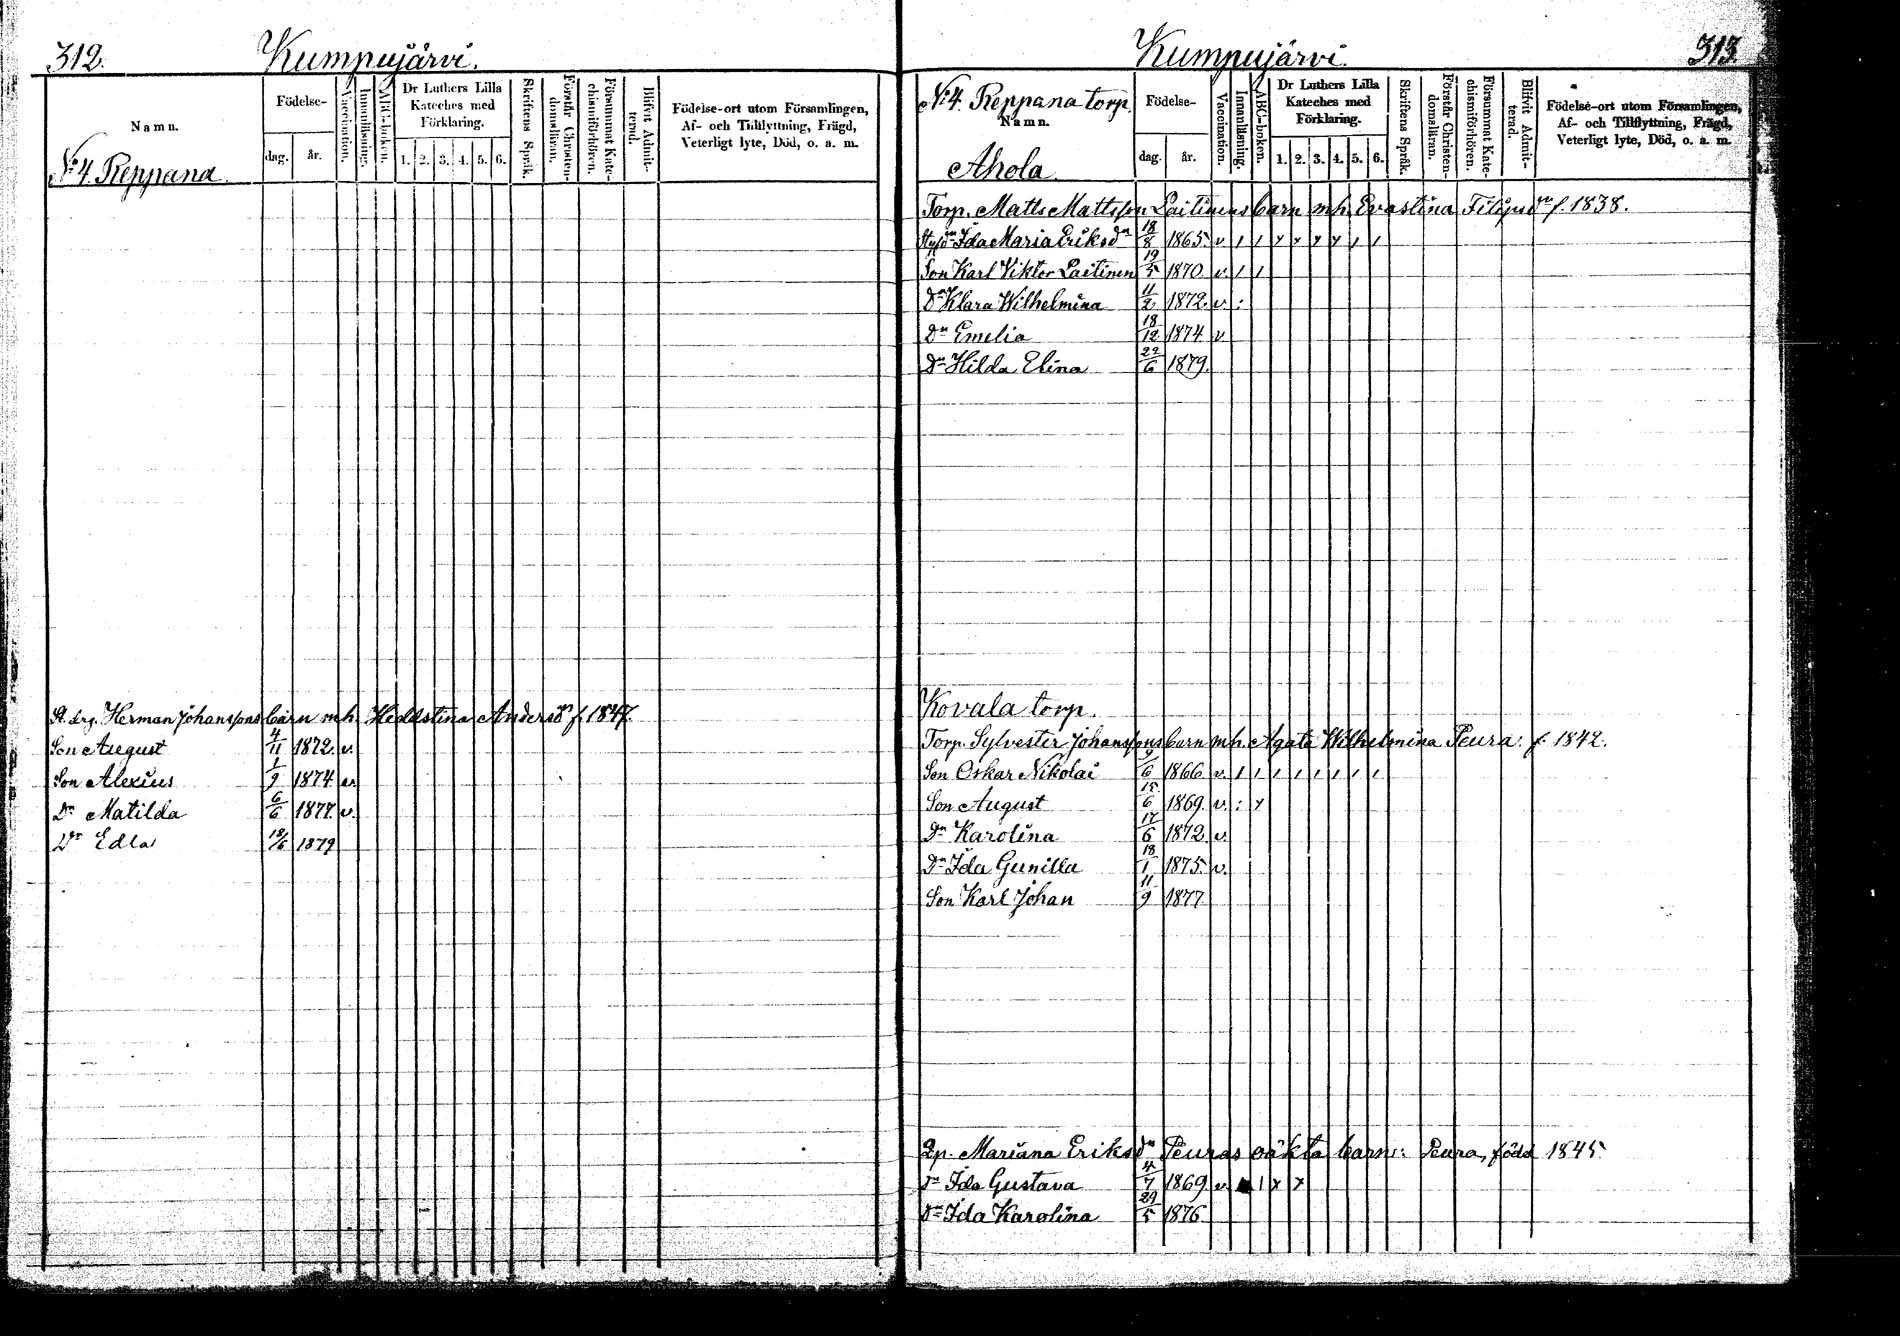 312. Kumpujärvi.
Namn.
Födelse-
dag. år.
Vaccination.
Innanläsning.
ABC-boken.
Dr Luthers Lilla Kateches med Förklaring.
1. 2. 3. 4. 5. 6.
Skriftens Språk.
Förstår Christendomsläran.
Försummat Katechismiförhören.
Blifvit Admitterad.
Födelse-ort utom Församlingen,
Af- och Tillflyttning, Frägd,
Veterligt lyte, Död, o. a. m.
No 4. Reppana.
Herman Johanssons barn mh. Heddstina Andersdr f. 1847.
Son August 4/11 1872. v.
Son Alexius 1/9 1874 v.
Dr Matilda 6/6 1877. v.
Dr Edla 1879
Kumpujärvi. 313.
No 4. Reppana torp.
Namn.
Födelse-
dag. år.
Vaccination.
Innanläsning.
ABC-boken.
Dr Luthers Lilla Kateches med Förklaring.
1. 2. 3. 4. 5. 6.
Skriftens Språk.
Förstår Christendomsläran.
Försummat Katechismiförhören.
Blifvit Admitterad.
Födelse-ort utom Församlingen,
Af- och Tillflyttning, Frägd,
Veterligt lyte, Död, o. a. m.
Ahola.
Torp. Matts Mattsson Laitinens barn mh. Evastina Filipsdr f. 1838.
Ida Maria Eriksdr 18/8 1865. v / / x x x x / /
Son Karl Viktor Laitinen 19/5 1870. v. / /
Dr Klara Wilhelmina 11/2 1872. v. :
Dr Emelia 18/12 1874 v
Dr Hilda Elina 22/6 1879.
Kovala torp.
Torp. Sylvester Johanssons barn mh. Agata Wilhelmina Peura. f. 1842.
Son Oskar Nikolai 9/6 1866 v. / / / / / / / /
Son August 15/6 1869. v. : x
Dr Karolina 17/6 1872. v.
Dr Ida Gunilla 18/1 1875. v.
Son Karl Johan 11/9 1877
Mariana Eriksdr Peuras oäkta barn: Peura, född 1845.
Dr Ida Gustava 4/7 1869. v. / x x
Dr Ida Karolina 29/5 1876